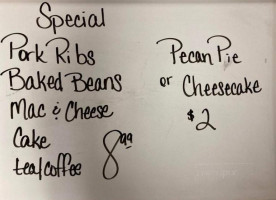 Special
Pork Ribs
Baked Beans
Mac & Cheese
Cake
tea/coffee
8.99
Pecan Pie
or Cheesecake
$2